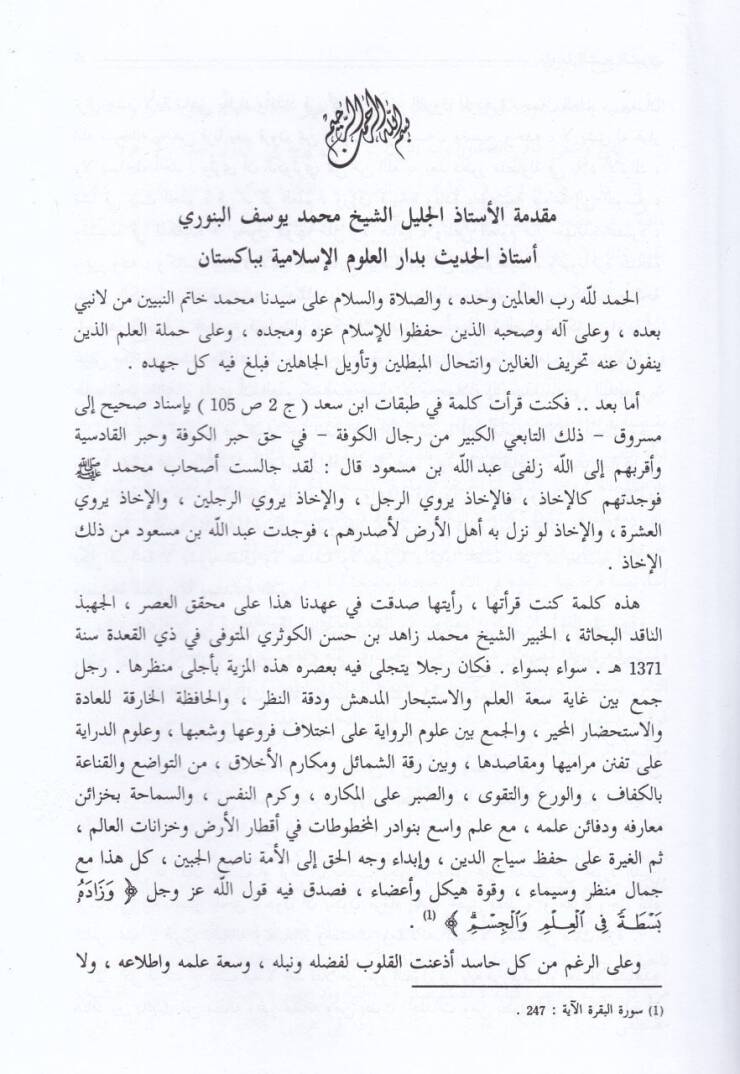 بسم الله الرحمن الرحيم
مقدمة الأستاذ الجليل الشيخ محمد يوسف البنوري
أستاذ الحديث بدار العلوم الإسلامية بباكستان
الحمد لله رب العالمين وحده ، والصلاة والسلام على سيدنا محمد خاتم النبيين من لانبي
بعده ، وعلى آله وصحبه الذين حفظوا للإسلام عزه ومجده ، وعلى حملة العلم الذين
ينفون عنه تحريف الغالين وانتحال المبطلين وتأويل الجاهلين فبلغ فيه كل جهده .
أما بعد .. فكنت قرأت كلمة في طبقات ابن سعد ( ج 2 ص 105 ) بإسناد صحيح إلى
مسروق – ذلك التابعي الكبير من رجال الكوفة – في حق حبر الكوفة وحبر القادسية
وأقربهم إلى الله زلفى عبد الله بن مسعود قال : لقد جالست أصحاب محمد ﷺ
فوجدتهم كالإخاذ ، فالإخاذ يروي الرجل ، والإخاذ يروي الرجلين ، والإخاذ يروي
العشرة ، والإخاذ لو نزل به أهل الأرض لأصدرهم ، فوجدت عبد الله بن مسعود من ذلك
الإخاذ .
هذه كلمة كنت قرأتها ، رأيتها صدقت في عهدنا هذا على محقق العصر ، الجهبذ
الناقد البحاثة ، الخبير الشيخ محمد زاهد بن حسن الكوثري المتوفى في ذي القعدة سنة
1371 هـ . سواء بسواء . فكان رجلا يتجلى فيه بعصره هذه المزية بأجلى منظرها . رجل
جمع بين غاية سعة العلم والاستبحار المدهش ودقة النظر ، والحافظة الخارقة للعادة
والاستحضار المحير ، والجمع بين علوم الرواية على اختلاف فروعها وشعبها ، وعلوم الدراية
على تفنن مراميها ومقاصدها ، وبين رقة الشمائل ومكارم الأخلاق ، من التواضع والقناعة
بالكفاف ، والورع والتقوى ، والصبر على المكاره ، وكرم النفس ، والسماحة بخزائن
معارفه ودفائن علمه ، مع علم واسع بنوادر المخطوطات في أقطار الأرض وخزانات العالم ،
ثم الغيرة على حفظ سياج الدين ، وإبداء وجه الحق إلى الأمة ناصع الجبين ، كل هذا مع
جمال منظر وسيماء ، وقوة هيكل وأعضاء ، فصدق فيه قول الله عز وجل ﴿ وَزَادَهُۥ
بَسْطَةً فِي ٱلْعِلْمِ وَٱلْجِسْمِ ﴾ (1) .
وعلى الرغم من كل حاسد أذعنت القلوب لفضله ونبله ، وسعة علمه واطلاعه ، ولا
(1) سورة البقرة الآية : 247 .